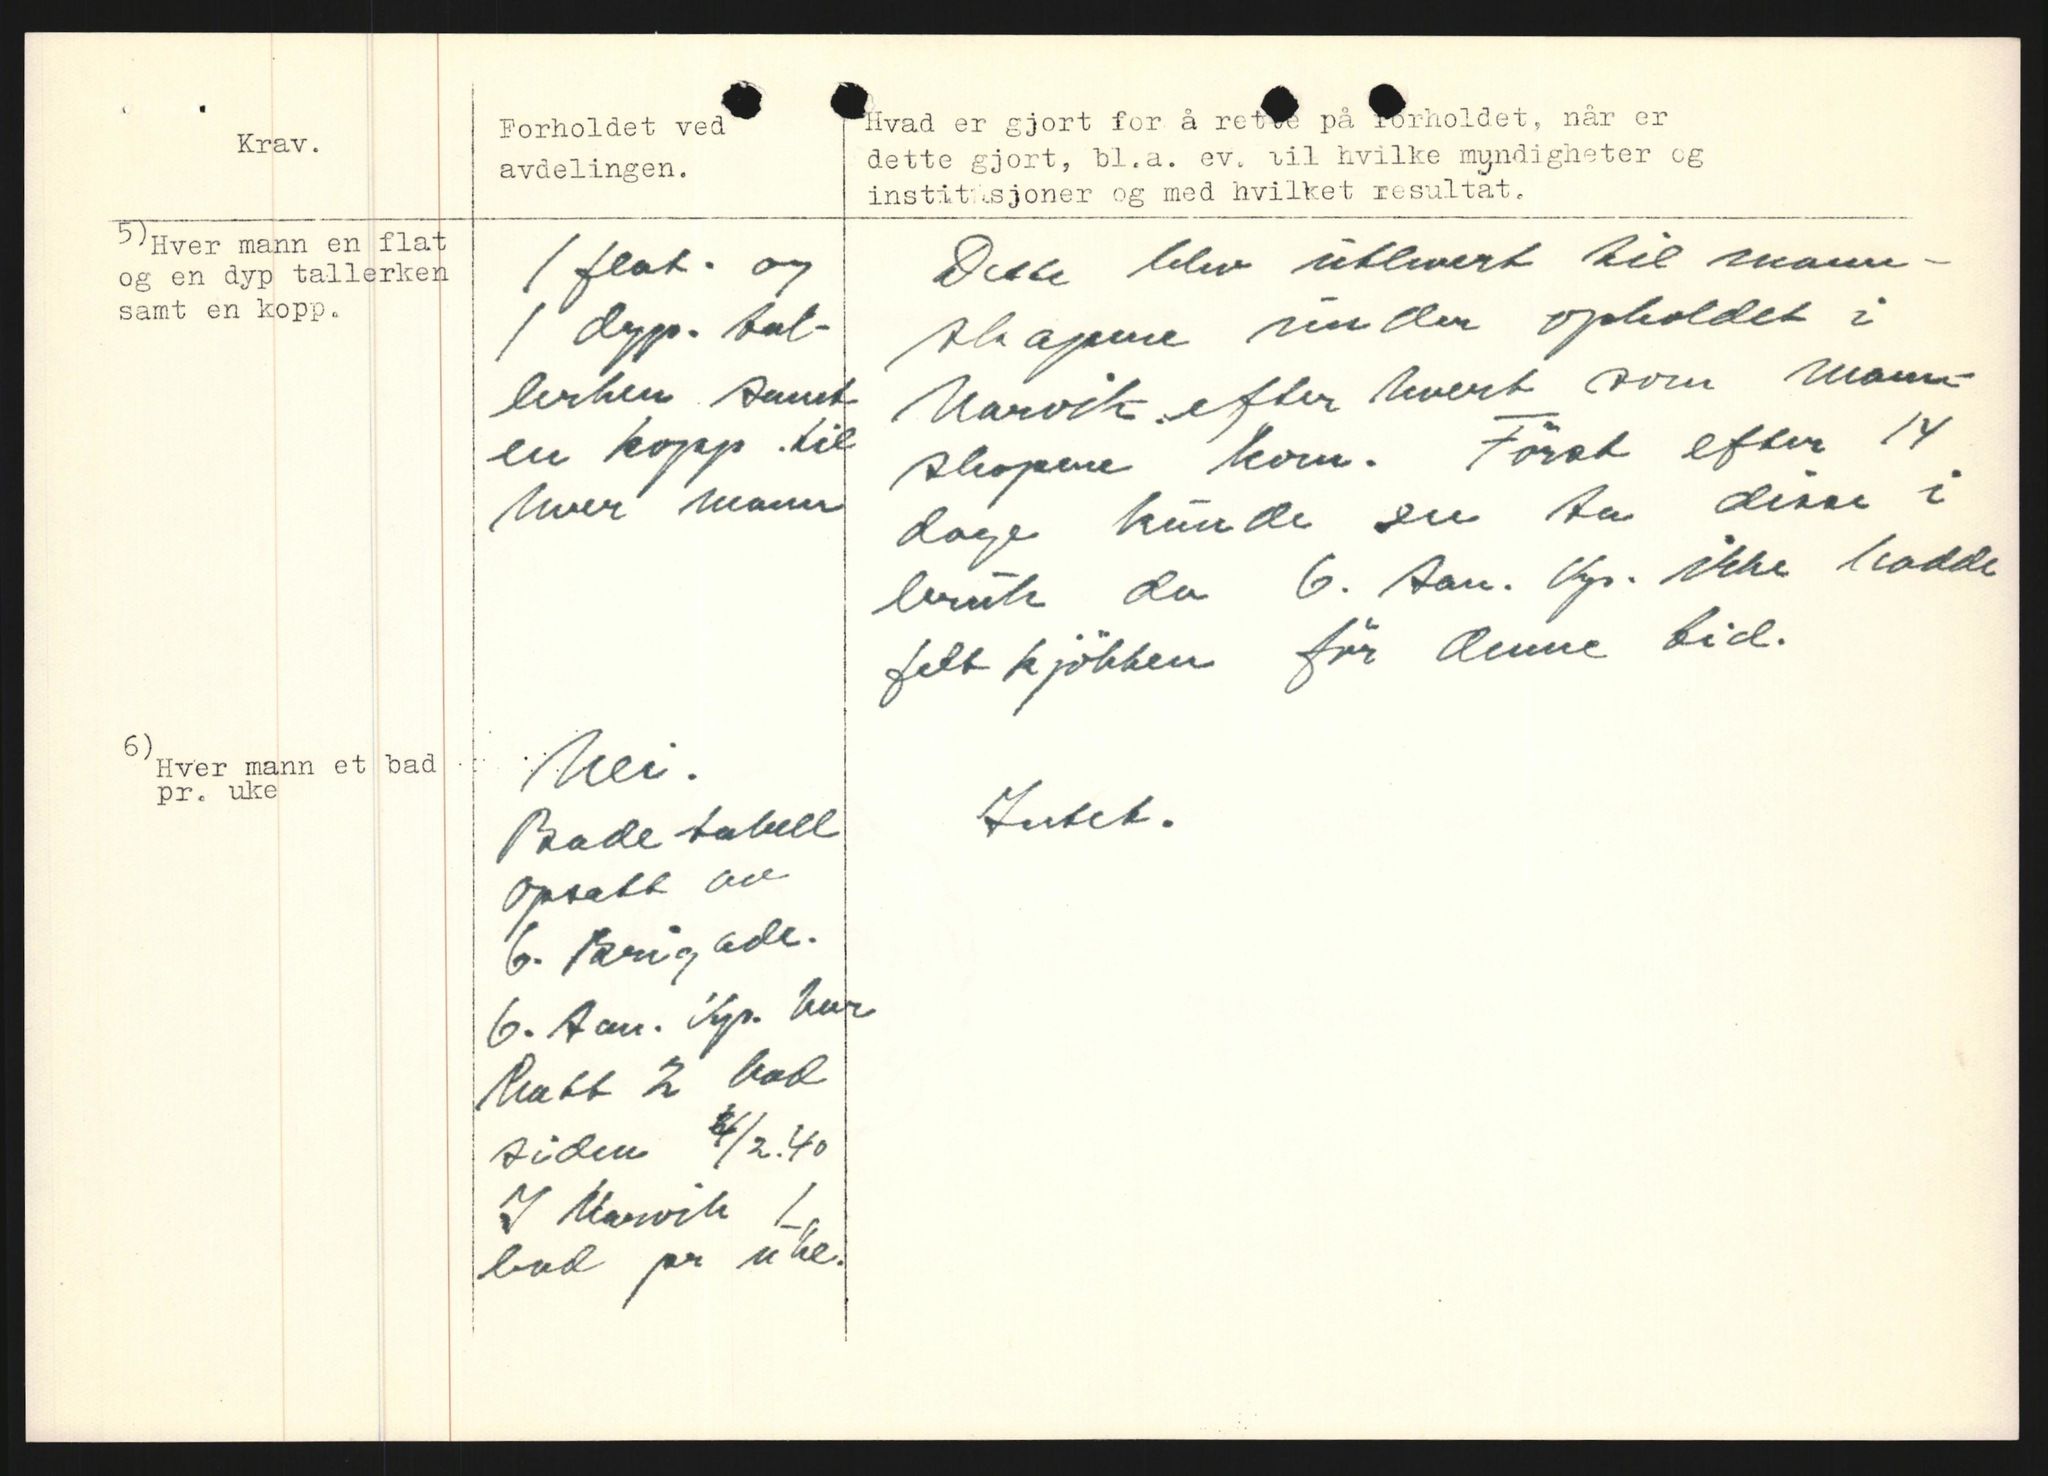 Krav.
Forholdet ved
avdelingen.
Hvad er gjort for å rette på forholdet, når er
dette gjort, bl.a. ev. til hvilke myndigheter og
institusjoner og med hvilket resultat.
5) Hver mann en flat
og en dyp tallerken
samt en kopp.
1 flat. og
1 dyp. tal-
lerken samt
en kopp til
hver mann
Dette blev utlevert til mann-
skapene under opholdet i
Narvik efter hvert som mann-
skapene kom. Først efter 14
dage kunde en ta disse i
bruk da 6. San. kp. ikke hadde
felt kjökken för denne tid.
6)
Hver mann et bad
pr. uke
Nei.
Bade tabell
opsatt av
6. Brigade.
6. San. kp. har
hatt 2 bad
siden /2.40
I Narvik 1
bad pr uke.
Intet.